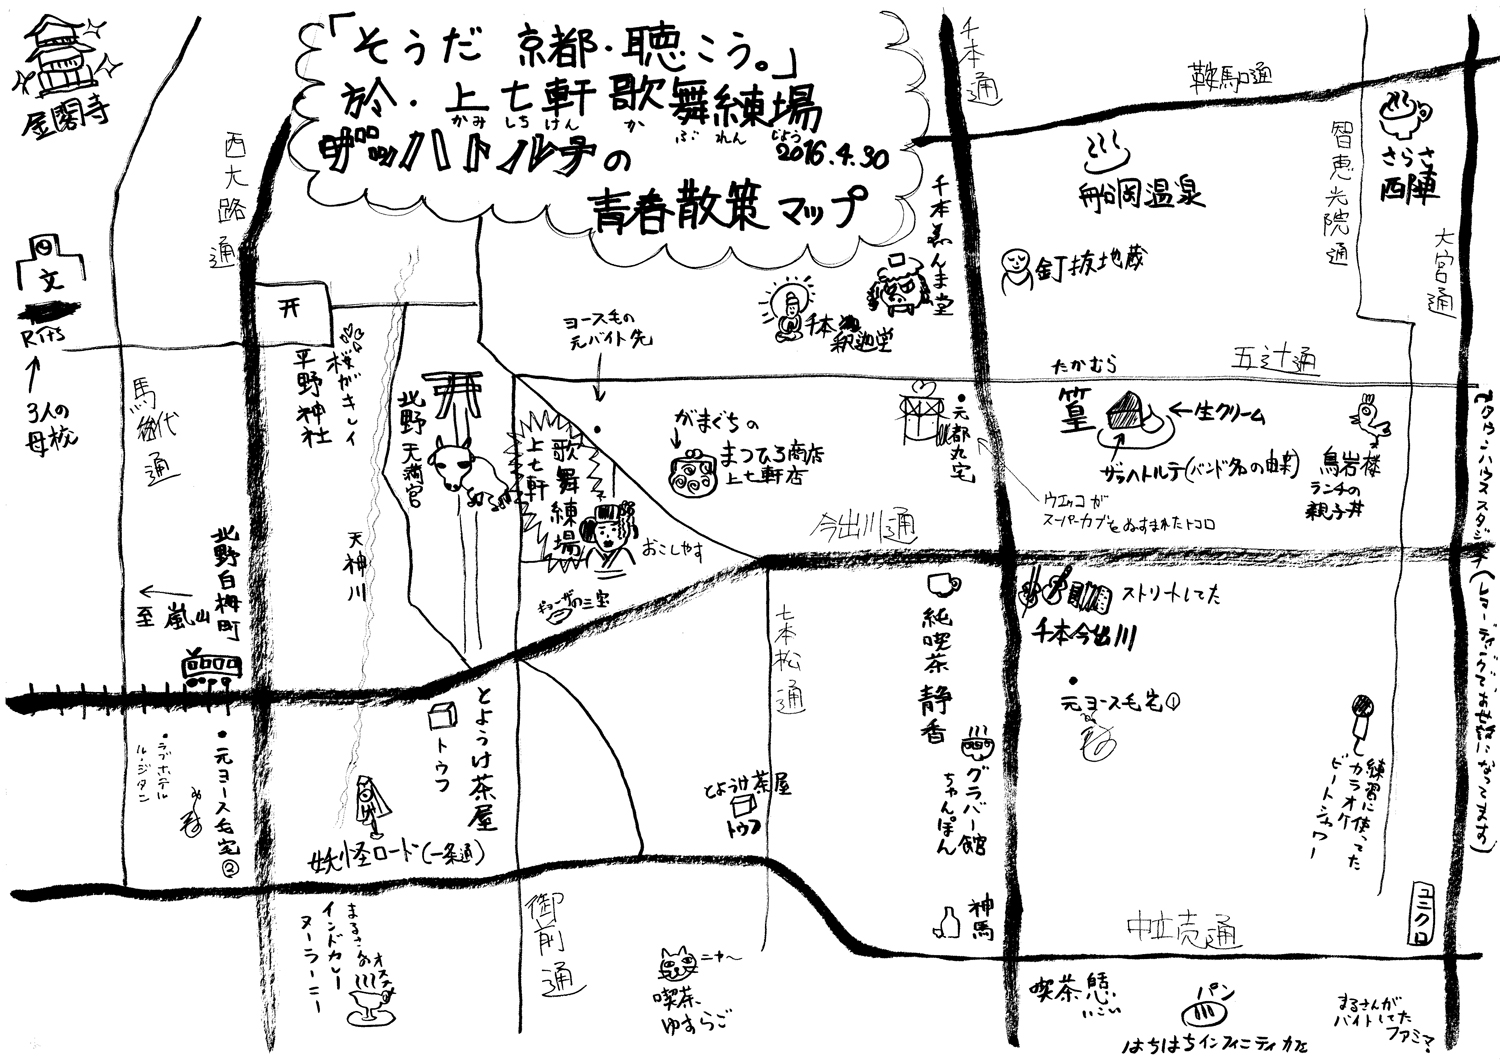 「そうだ 京都・聴こう。」
於・上七軒歌舞練場
かみ しち けん か ぶ れん じょう
ザッハトルテの
2016.4.30
青春散策マップ
金閣寺
西大路通
千本通
鞍馬口通
智恵光院通
大宮通
さらさ
西陣
船岡温泉
千本ゑんま堂
釘抜地蔵
千本
釈迦堂
ヨース毛の
元バイト先
文
Rits
3人の
母校
馬代通
平野神社
桜がキレイ
北野天満宮
上七軒
歌舞練場
おこしやす
がまぐちの
まつひろ商店
上七軒店
元都丸宅
五辻通
たかむら
篁
←生クリーム
ザッハトルテ(バンド名の由来)
鳥岩楼
ランチの
親子丼
ウエッコが
スーパーカブをぬすまれたトコロ
今出川通
ギョーザの三宝
天神川
北野白梅町
至 嵐山
七本松通
純喫茶 静香
ストリートしてた
千本今出川
元ヨース毛宅①
とようけ茶屋
トウフ
ラブホテル
ル・ジタン
元ヨース毛宅②
妖怪ロード(一条通)
とようけ茶屋
トウフ
グラバー館
ちゃんぽん
練習に使ってた
カラオケ
ビートシャワー
ユニクロ
神馬
中立売通
御前通
まるさんオススメ
インドカレー
ヌーラーニー
ニャ〜
喫茶
ゆすらご
喫茶 憩
いこい
パン
はちはちインフィニティカフェ
まるさんが
バイトしてた
ファミマ